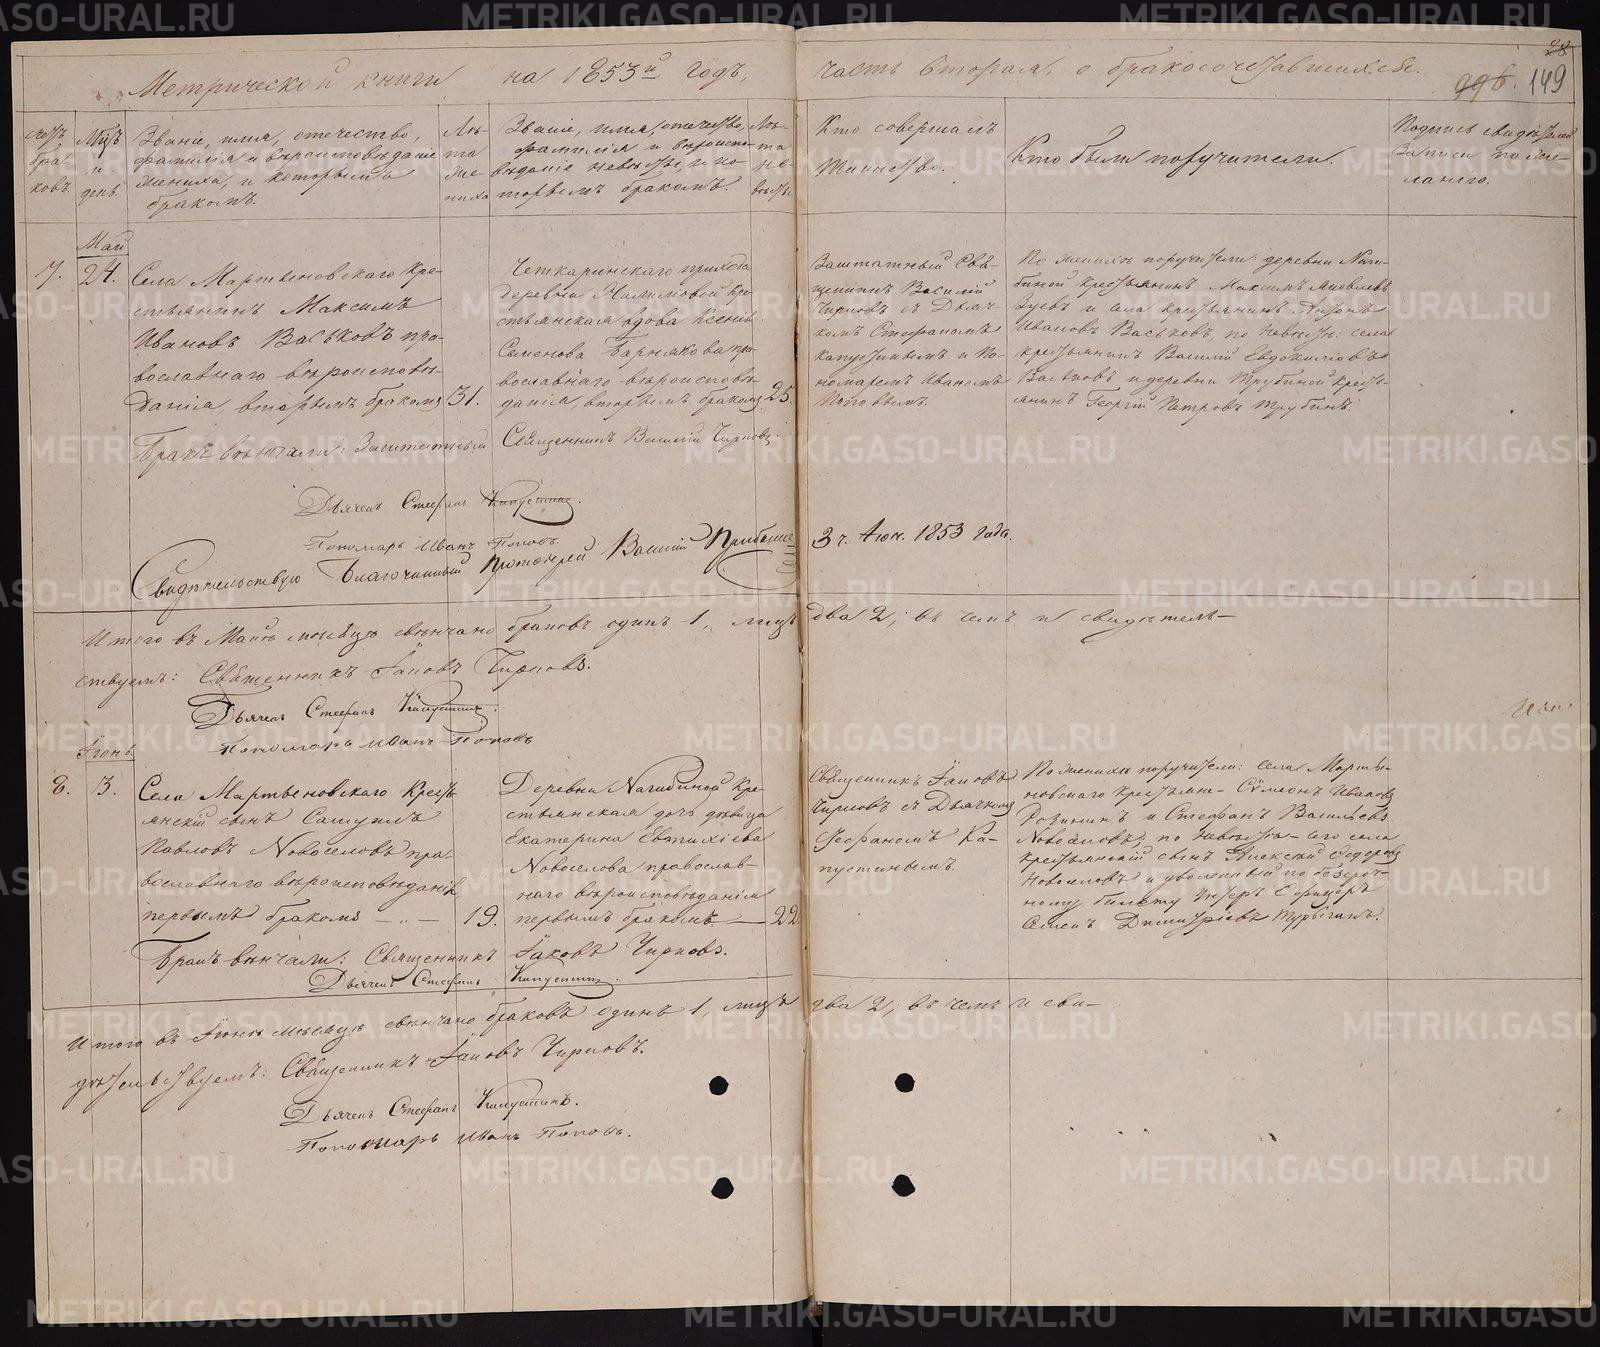 Метрической книги на 1853й годъ, часть вторая, о бракосочетавшихся.
28
149
Счетъ бра-ковъ.
Мцъ и день.
Званіе, имя, отечество,
фамилія и вѣроисповѣданіе
жениха, и которымъ
бракомъ.
Лѣ-
та
же-
ниха
Званіе, имя, отечество,
фамилія и вѣроиспо-
вѣданіе невѣсты, и ко-
торымъ бракомъ.
Лѣ-
та
не-
вѣсты.
Кто совершалъ
Таинство.
Кто были поручители.
Подпись свидѣтелей
записи по же-
ланію.
Май
7.
24.
Села Мартыновскаго кре-
стьянинъ Максимъ
Ивановъ Васьковъ пра-
вославнаго вѣроисповѣ-
данія, вторымъ бракомъ
31.
Четкаринскаго прихода
деревни Налимовой кре-
стьянская вдова Ксенія
Семенова Барнякова пра-
вославнаго вѣроисповѣ-
данія, вторымъ бракомъ
25.
Заштатный Свя-
щенникъ Василій
Чирковъ съ Дьяч-
комъ Стефаномъ
Капустинымъ и По-
номаремъ Иваномъ
Поповымъ.
По женихѣ поручители: деревни
крестьянинъ Максимъ Яковлевъ
Зуевъ и села крестьянинъ Антонъ
Ивановъ Васьковъ, по невѣстѣ: села
крестьянинъ Василій Евдокимовъ
Васьковъ и деревни Трубиной кресть-
янинъ Георгій Петровъ Трубинъ.
Бракъ вѣнчали: Заштатный Священникъ Василій Чирковъ.
Дьячекъ Стефанъ Капустинъ.
Пономарь Иванъ Поповъ.
Свидѣтельствую Благочинный Протоіерей Василій
3 ч. Іюн. 1853 года.
Итого въ Маѣ мѣсяцѣ свѣнчано браковъ одинъ 1, лицъ два 2; въ чемъ и свидѣтель-
ствуемъ: Священникъ Іаковъ Чирковъ.
Дьячекъ Стефанъ Капустинъ.
Пономарь Иванъ Поповъ
Іюнь
8.
3.
Села Мартыновскаго кресть-
янскій сынъ Самуилъ
Павловъ Новоселовъ пра-
вославнаго вѣроисповѣданія,
первымъ бракомъ — „ —
19.
Деревни Нагибиной кре-
стьянская дочь дѣвица
Екатерина Евтихіева
Новоселова православ-
наго вѣроисповѣданія
первымъ бракомъ. —
22
Священникъ Іаковъ
Чирковъ съ Дьячкомъ
Стефаномъ Ка-
пустинымъ.
По женихѣ поручители: села Марты-
новскаго крестьян— Сѷмеонъ Ивановъ
и Стефанъ Васильевъ
Новоселовъ, по невѣстѣ— его села
крестьянскій сынъ Алексѣй Ѳедоровъ
Новоселовъ и уволенный по безсроч-
ному билету Унтеръ Офицеръ
Димитріевъ
Бракъ вѣнчали: Священникъ Іаковъ Чирковъ.
Дьячекъ Стефанъ Капустинъ.
Итого въ Іюнѣ мѣсяцѣ свѣнчано браковъ одинъ 1, лицъ два 2; въ чемъ и сви-
дѣтельствуемъ: Священникъ Іаковъ Чирковъ.
Дьячекъ Стефанъ Капустинъ.
Пономарь Иванъ Поповъ.
METRIKI.GASO-URAL.RU